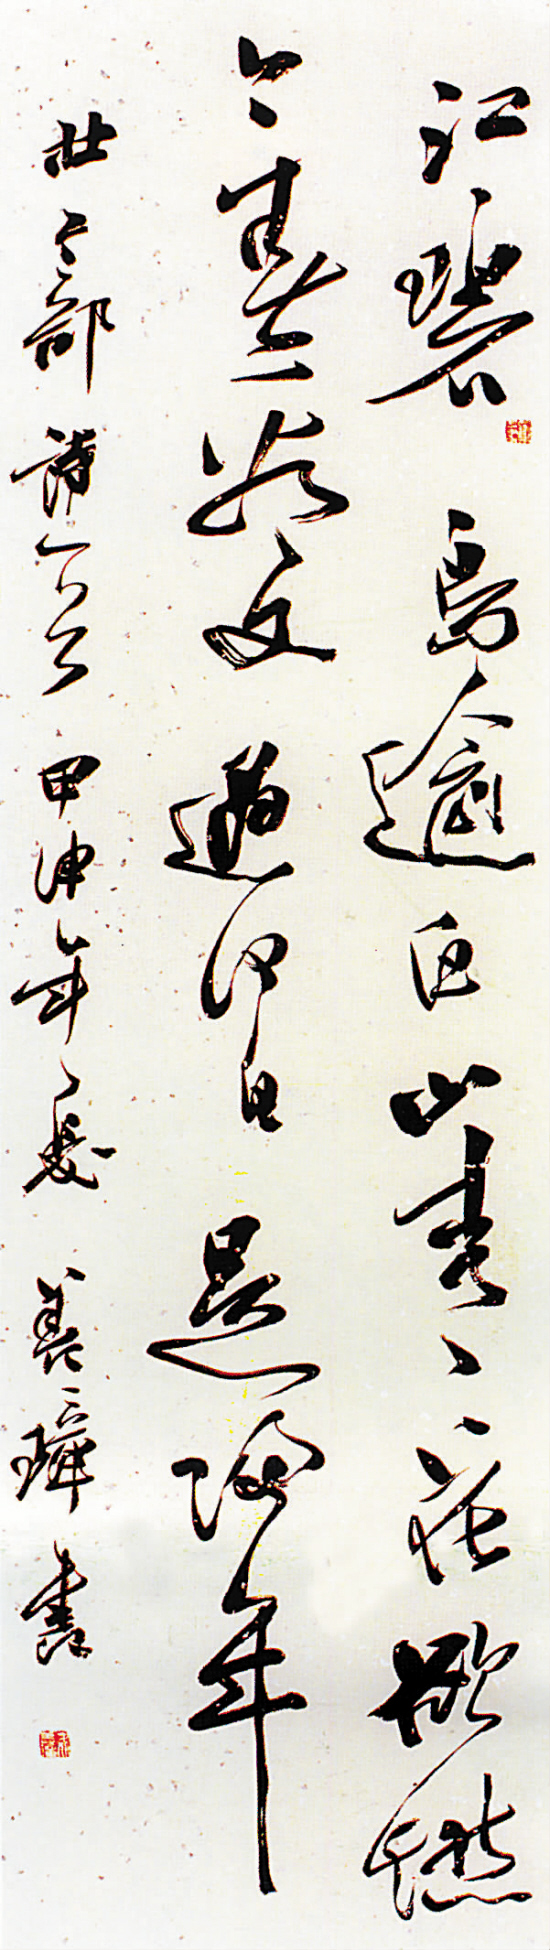 江碧鳥逾白山青花欲燃
今春看又過何日是歸年
杜工部詩一首甲申年夏善璋書